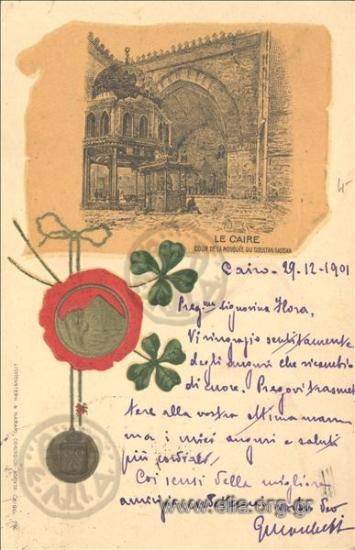 LE CAIRE
COUR DE LA MOSQUÉE DU SOULTAN HASSAN
Cairo - 29-12-1901
Preg.ma Signorina Flora,
Vi ringrazio sentitamente
degli auguri che ricambio
di cuore. Pregovi trasmet
tere alla vostra ottima mam
ma i miei auguri e saluti
più cordiali
Coi sensi della migliore
amicizia
LICHTENSTERN & HARARI, CAIRO
www.elia.org.gr